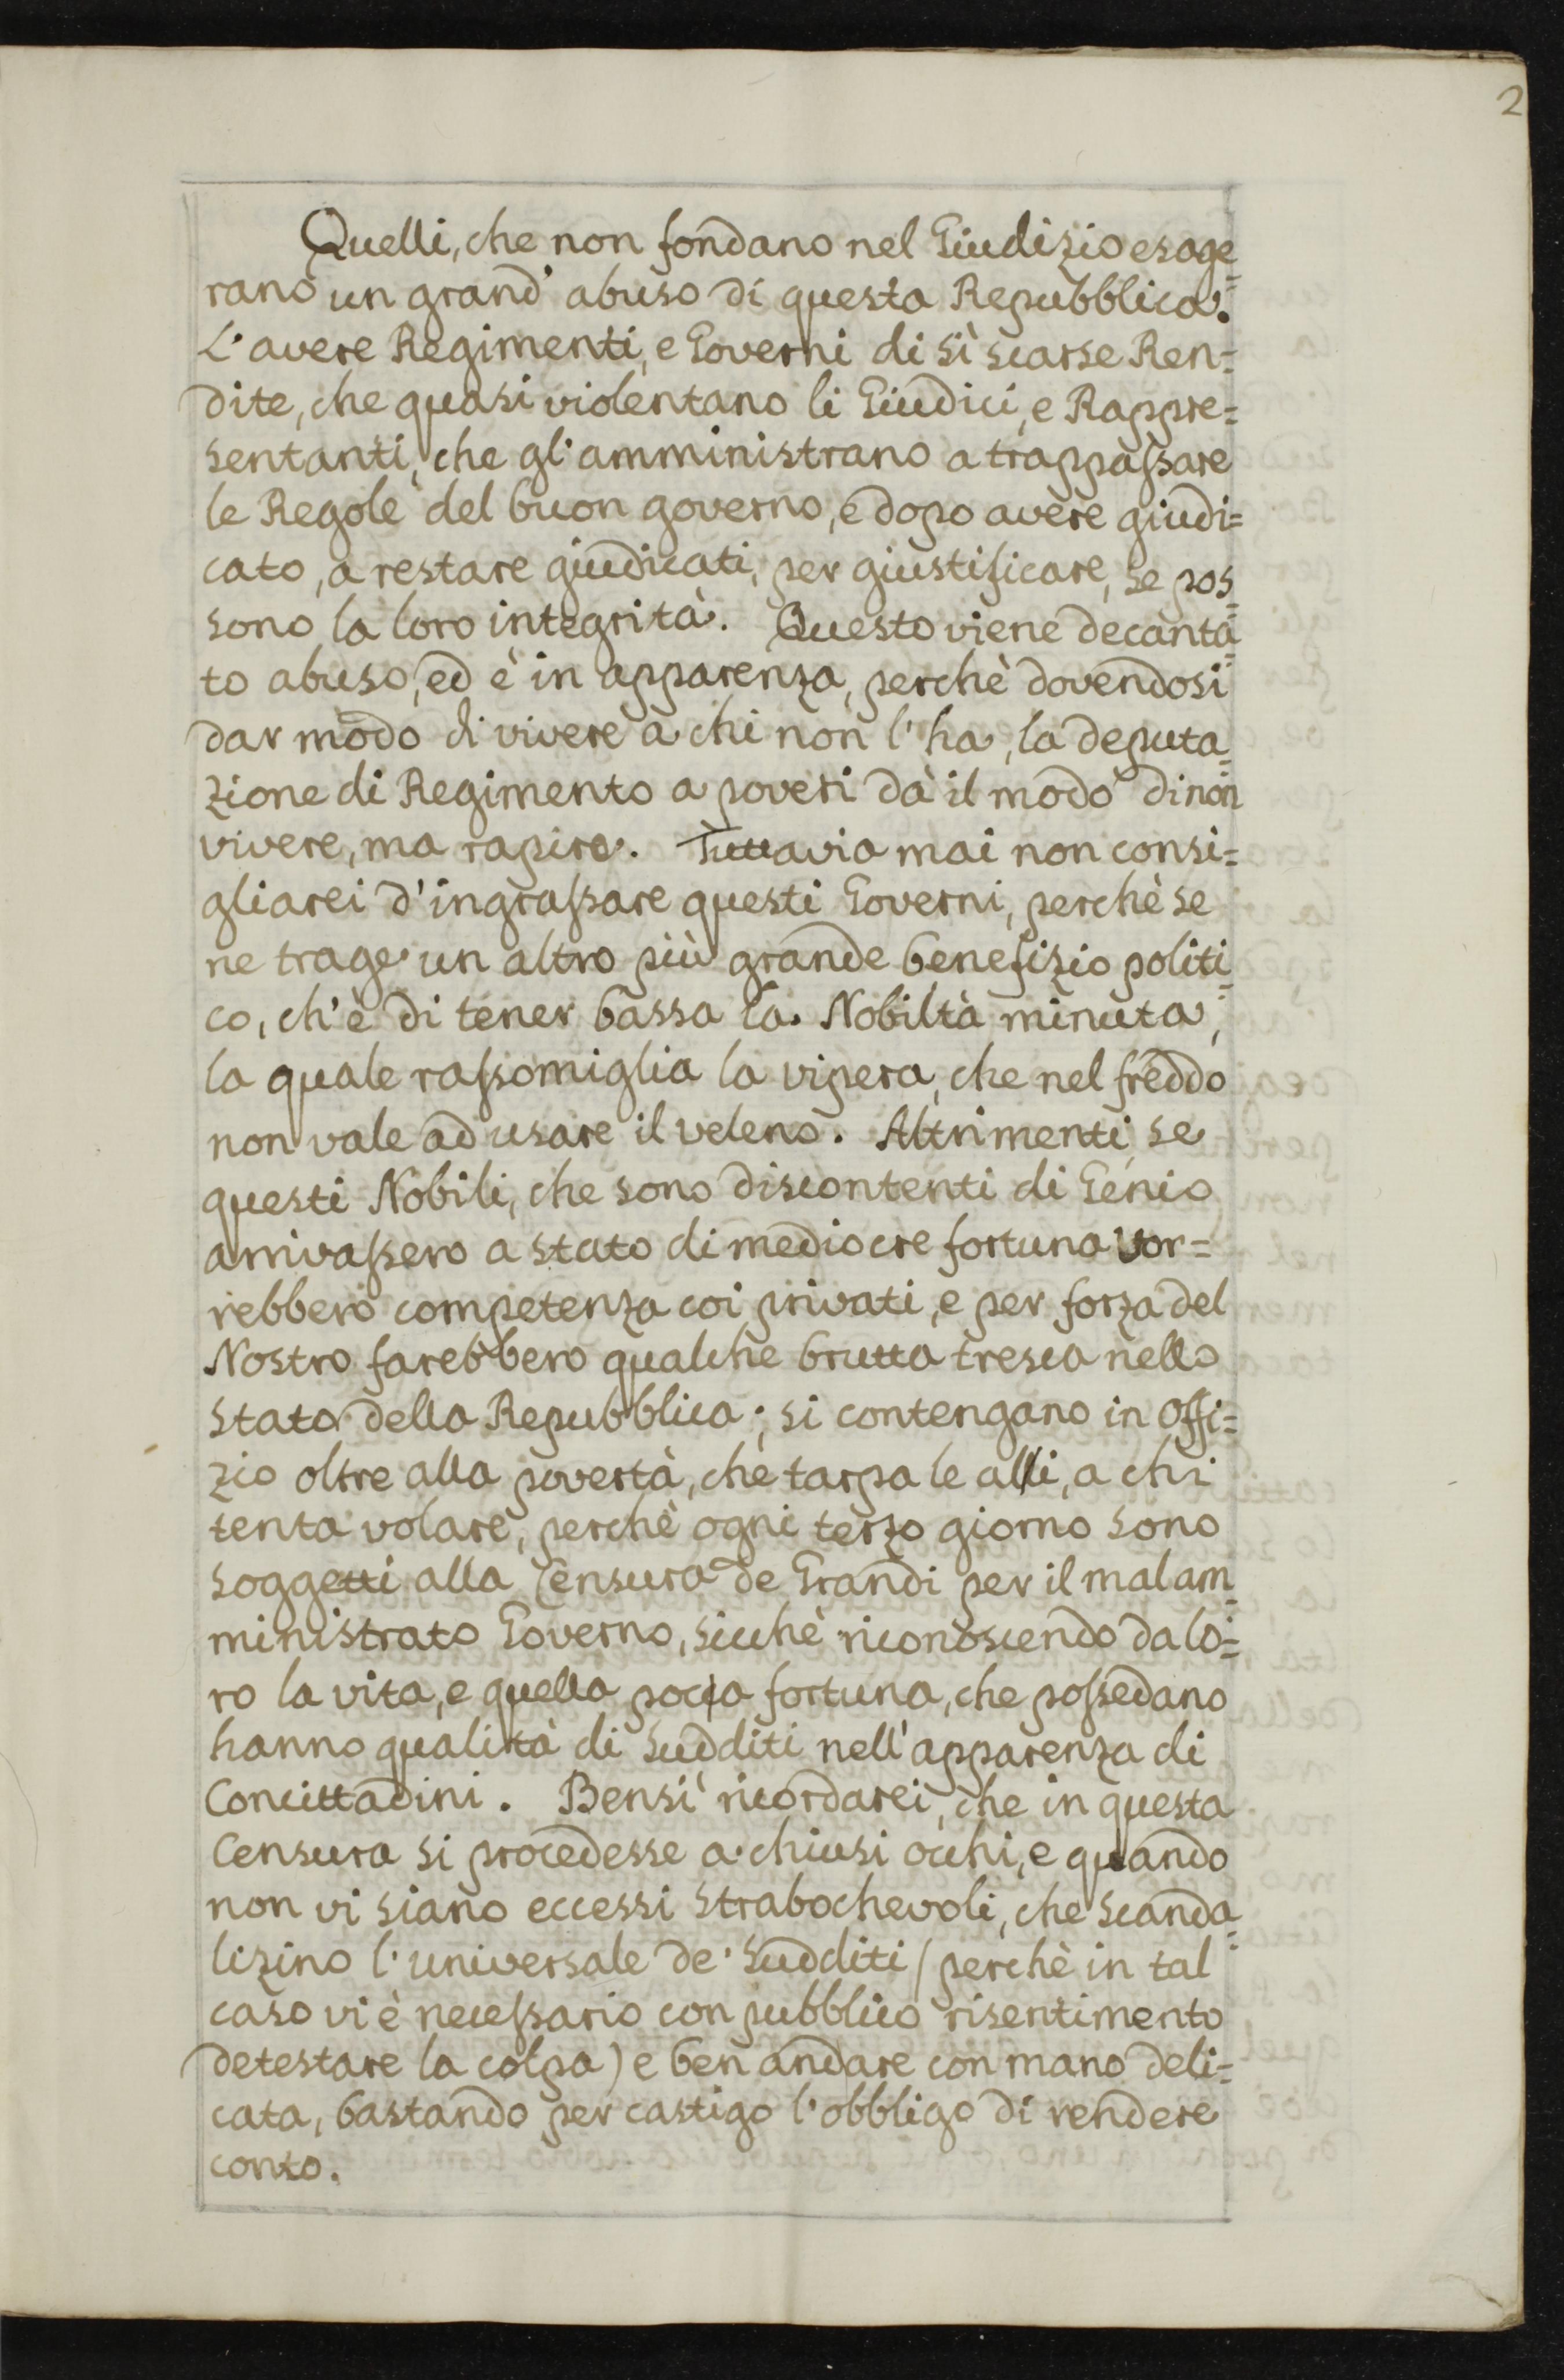 2
Quelli, che non fondano nel Giudizio esage=
rano un grand' abuso di questa Repubblica.
L'avere Regimenti, e Governi di sì scarse Ren=
dite, che quasi violentano li Giudici, e Rappre=
sentanti, che gl'amministrano a trappaſsare
le Regole del buon governo, e dopo avere giudi=
cato, a restare giudicati, per giustificare, se pos=
sono la loro integrità. Questo viene decanta=
to abuso, ed è in apparenza, perchè dovendosi
dar modo di vivere a chi non l'ha, la deputa=
zione di Regimento a poveri dà il modo di non
vivere, ma rapire. Tuttavia mai non consi=
gliarei d'ingraſsare questi Governi, perchè se
ne trage un altro più grande benefizio politi=
co, ch'è di tener bassa la Nobiltà minuta,
la quale raſsomiglia la vipera, che nel freddo
non vale ad usare il veleno. Altrimenti, se
questi Nobili, che sono discontenti di Genio
arrivaſsero a stato di mediocre fortuna vor=
rebbero competenza coi privati, e per forza del
Nostro farebbero qualche brutta tresca nello
stato della Repubblica; si contengano in offi=
zio oltre alla povertà, che tarpa le alli, a chi
tenta volare, perchè ogni terzo giorno sono
soggetti alla Censura de Grandi per il mal am=
ministrato Governo, sicchè riconoscendo da lo=
ro la vita, e quella poca fortuna, che poſsedano
hanno qualità di sudditi nell'apparenza di
Concittadini. Bensì ricordarei, che in questa
Censura si procedesse a chiusi occhi, e quando
non vi siano eccessi strabochevoli, che scanda=
lizino l'universale de' Sudditi (perchè in tal
caso vi è neceſsario con pubblico risentimento
detestare la colpa) e ben andare con mano deli=
cata, bastando per castigo l'obbligo di rendere
conto.